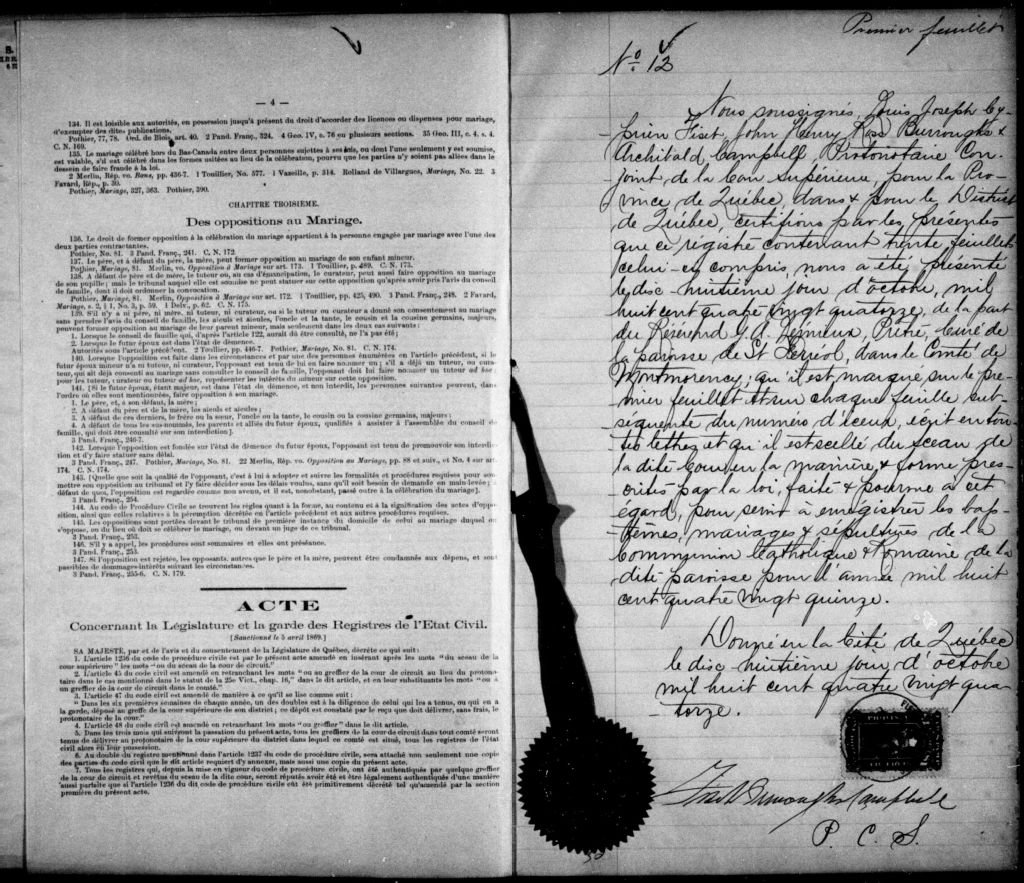 — 4 —
134. Il est loisible aux autorités, en possession jusqu'à présent du droit d'accorder des licences ou dispenses pour mariage,
d'exempter des dites publications.
Pothier, 77, 78. Ord. de Blois, art. 40. 2 Pand. Franç., 324. 4 Geo. IV, c. 76 en plusieurs sections. 35 Geo. III, c. 4, s. 4.
C. N. 169.
135. Le mariage célébré hors du Bas-Canada entre deux personnes sujettes à ses lois, ou dont l'une seulement y est soumise,
est valable, s'il est célébré dans les formes usitées au lieu de la célébration, pourvu que les parties n'y soient pas allées dans le
dessein de faire fraude à la loi.
2 Merlin, Rép. vo. Bans, pp. 436-7. 1 Touillier, No. 577. 1 Vazeille, p. 314. Rolland de Villargues, Mariage, No. 22. 3
Favard, Rép., p. 39.
Pothier, Mariage, 327, 363. Pothier, 390.
CHAPITRE TROISIÈME.
Des oppositions au Mariage.
136. Le droit de former opposition à la célébration du mariage appartient à la personne engagée par mariage avec l'une des
deux parties contractantes.
Pothier, No. 81. 3 Pand. Franç., 241. C. N. 172.
137. Le père, et à défaut du père, la mère, peut former opposition au mariage de son enfant mineur.
Pothier, Mariage, 81. Merlin, vo. Opposition à Mariage sur art. 173. 1 Touillier, p. 489. C. N. 173.
138. A défaut de père et de mère, le tuteur ou, au cas d'émancipation, le curateur, peut aussi faire opposition au mariage
de son pupille; mais le tribunal auquel elle est soumise ne peut statuer sur cette opposition qu'après avoir pris l'avis du conseil
de famille, dont il doit ordonner la convocation.
Pothier, Mariage, 81. Merlin, Opposition à Mariage sur art. 172. 1 Touillier, pp. 425, 490. 3 Pand. Franç., 248. 2 Favard,
Mariage, s. 2, § 1, No. 3, p. 59. 1 Delv., p. 62. C. N. 175.
139. S'il n'y a ni père, ni mère, ni tuteur, ni curateur, ou si le tuteur ou curateur a donné son consentement au mariage
sans prendre l'avis du conseil de famille, les aïeuls et aïeules, l'oncle et la tante, le cousin et la cousine germains, majeurs,
peuvent former opposition au mariage de leur parent mineur, mais seulement dans les deux cas suivants:
1. Lorsque le conseil de famille qui, d'après l'article 122, aurait dû être consulté, ne l'a pas été;
2. Lorsque le futur époux est dans l'état de démence.
Autorités sous l'article précédent. 2 Touillier, pp. 446-7. Pothier, Mariage, No. 81. C. N. 174.
140. Lorsque l'opposition est faite dans les circonstances et par une des personnes énumérées en l'article précédent, si le
futur époux mineur n'a ni tuteur, ni curateur, l'opposant est tenu de lui en faire nommer un; s'il a déjà un tuteur, ou cura-
teur, qui ait déjà consenti au mariage sans consulter le conseil de famille, l'opposant doit lui faire nommer un tuteur ad hoc;
pour les tuteur, curateur ou tuteur ad hoc, représenter les intérêts du mineur sur cette opposition.
141. [Si le futur époux, étant majeur, est dans l'état de démence, et non interdit, les personnes suivantes peuvent, dans
l'ordre où elles sont mentionnées, faire opposition à son mariage.
1. Le père, et, à son défaut, la mère;
2. A défaut du père et de la mère, les aïeuls et aïeules;
3. A défaut de ces derniers, le frère ou la sœur, l'oncle ou la tante, le cousin ou la cousine germains, majeurs;
4. A défaut de tous les sus-nommés, les parents et alliés du futur époux, qualifiés à assister à l'assemblée du conseil de
famille, qui doit être consulté sur son interdiction].
3 Pand. Franç., 246-7.
142. Lorsque l'opposition est fondée sur l'état de démence du futur époux, l'opposant est tenu de promouvoir son interdic-
tion et d'y faire statuer sans délai.
3 Pand. Franç., 247. Pothier, Mariage, No. 81. 22 Merlin, Rép. vo. Opposition au Mariage, pp. 88 et suiv., et No. 4 sur art.
174. C. N. 174.
143. [Quelle que soit la qualité de l'opposant, c'est à lui à adopter et suivre les formalités et procédures requises pour sou-
mettre son opposition au tribunal et l'y faire décider sous les délais voulus, sans qu'il soit besoin de demande en main-levée; à
défaut de quoi, l'opposition est regardée comme non avenu, et il est, nonobstant, passé outre à la célébration du mariage].
3 Pand. Franç., 254.
144. Au code de Procédure Civile se trouvent les règles quant à la forme, au contenu et à la signification des actes d'oppo-
sition, ainsi que celles relatives à la péremption décrétée en l'article précédent et aux autres procédures requises.
145. Les oppositions sont portées devant le tribunal de première instance du domicile de celui au mariage duquel on
s'oppose, ou du lieu où doit se célébrer le mariage, ou devant un juge de ce tribunal.
3 Pand. Franç., 253.
146. S'il y a appel, les procédures sont sommaires et elles ont préséance.
3 Pand. Franç., 253.
147. Si l'opposition est rejetée, les opposants, autres que le père et la mère, peuvent être condamnés aux dépens, et sont
passibles de dommages-intérêts suivant les circonstances.
3 Pand. Franç., 255-6. C. N. 179.
ACTE
Concernant la Législature et la garde des Registres de l'Etat Civil.
[Sanctionné le 5 avril 1869.]
SA MAJESTÉ, par et de l'avis et du consentement de la Législature de Québec, décrète ce qui suit:
1. L'article 1236 du code de procédure civile est par le présent acte amendé en insérant après les mots "du sceau de la
cour supérieure" les mots "ou du sceau de la cour de circuit."
2. L'article 45 du code civil est amendé en retranchant les mots "ou au greffier de la cour de circuit au lieu du protono-
taire dans le cas mentionné dans le statut de la 25e Vict., chap. 16," dans le dit article, et en leur substituants les mots "ou à
un greffier de la cour de circuit dans le comté."
3. L'article 47 du code civil est amendé de manière à ce qu'il se lise comme suit:
"Dans les six premières semaines de chaque année, un des doubles est à la diligence de celui qui les a tenus, ou qui en a
la garde, déposé au greffe de la cour supérieure de son district; ce dépôt est constaté par le reçu que doit délivrer, sans frais, le
protonotaire de la cour."
4. L'article 48 du code civil est amendé en retranchant les mots "ou greffier" dans le dit article.
5. Dans les trois mois qui suivront la passation du présent acte, tous les greffiers de la cour de circuit dans tout comté seront
tenus de délivrer au protonotaire de la cour supérieure du district dans lequel ce comté est situé, tous les registres de l'état
civil alors en leur possession.
6. Au double du registre mentionné dans l'article 1237 du code de procédure civile, sera attaché non seulement une copie
des parties du code civil que le dit article requiert d'y annexer, mais aussi une copie du présent acte.
7. Tous les registres qui, depuis la mise en vigueur du code de procédure civile, ont été authentiqués par quelque greffier
de la cour de circuit et revêtus du sceau de la dite cour, seront réputés avoir été et être légalement authentiqués d'une manière
aussi parfaite que si l'article 1236 du dit code de procédure civile eût été primitivement décrété tel qu'amendé par la section
première du présent acte.
Premier feuillet
No. 12
Nous soussignés, Louis Joseph Cy-
prien Fiset, John Henry Ross Burroughs &
Archibald Campbell, Protonotaire Con-
joint de la Cour Supérieure, pour la Pro-
vince de Québec, dans & pour le District
de Québec, certifions par les présentes
que ce régistre contenant trente feuillets
celui-ci compris, nous a été présenté
le dix-huitième jour d'octobre, mil
huit cent quatre vingt quatorze, de la part
du Révérend G. A. Lemieux, Prêtre, Curé de
la paroisse de St Ferréol, dans le Comté de
Montmorency; qu'il est marqué sur le pre-
mier feuillet et sur chaque feuille sub-
séquente du numéro d'iceux, écrit en tou-
tes lettres et qu'il est scellé du sceau de
la dite Cour en la manière & forme pres-
crites par la loi, faite & pourvue à cet
égard, pour servir à enregistrer les bap-
têmes, mariages & sépultures de la
Communion Catholique & Romaine de la
dite paroisse pour l'année mil huit
cent quatre vingt quinze.
Donné en la Cité de Québec
le dix-huitième jour d'octobre
mil huit cent quatre vingt qua-
torze.
Fiset Burroughs Campbell
P. C. S.